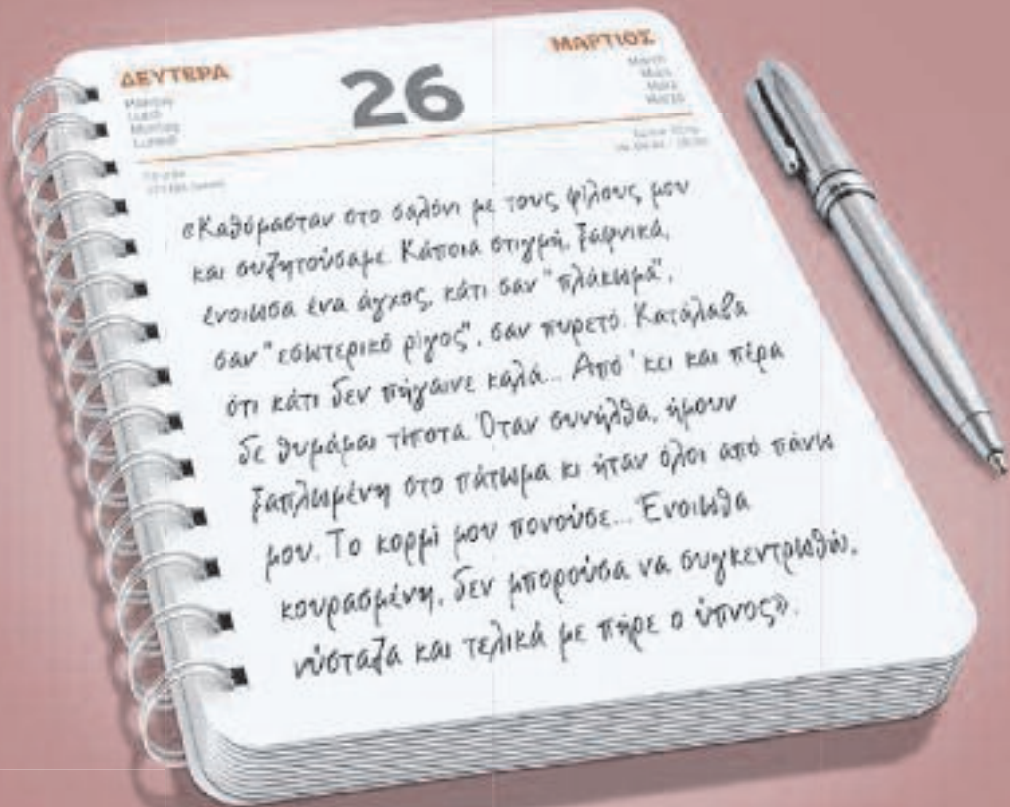 ΔΕΥΤΕΡΑ
26
ΜΑΡΤΙΟΣ
«Καθόμασταν στο σαλόνι με τους φίλους μου
και συζητούσαμε. Κάποια στιγμή, ξαφνικά,
ένοιωσα ένα άγχος, κάτι σαν "πλάκωμα",
σαν "εσωτερικό ρίγος", σαν πυρετό. Κατάλαβα
ότι κάτι δεν πήγαινε καλά... Από 'κει και πέρα
δε θυμάμαι τίποτα. Όταν συνήλθα, ήμουν
ξαπλωμένη στο πάτωμα κι ήταν όλοι από πάνω
μου. Το κορμί μου πονούσε... Ένοιωθα
κουρασμένη, δεν μπορούσα να συγκεντρωθώ,
νύσταζα και τελικά με πήρε ο ύπνος».